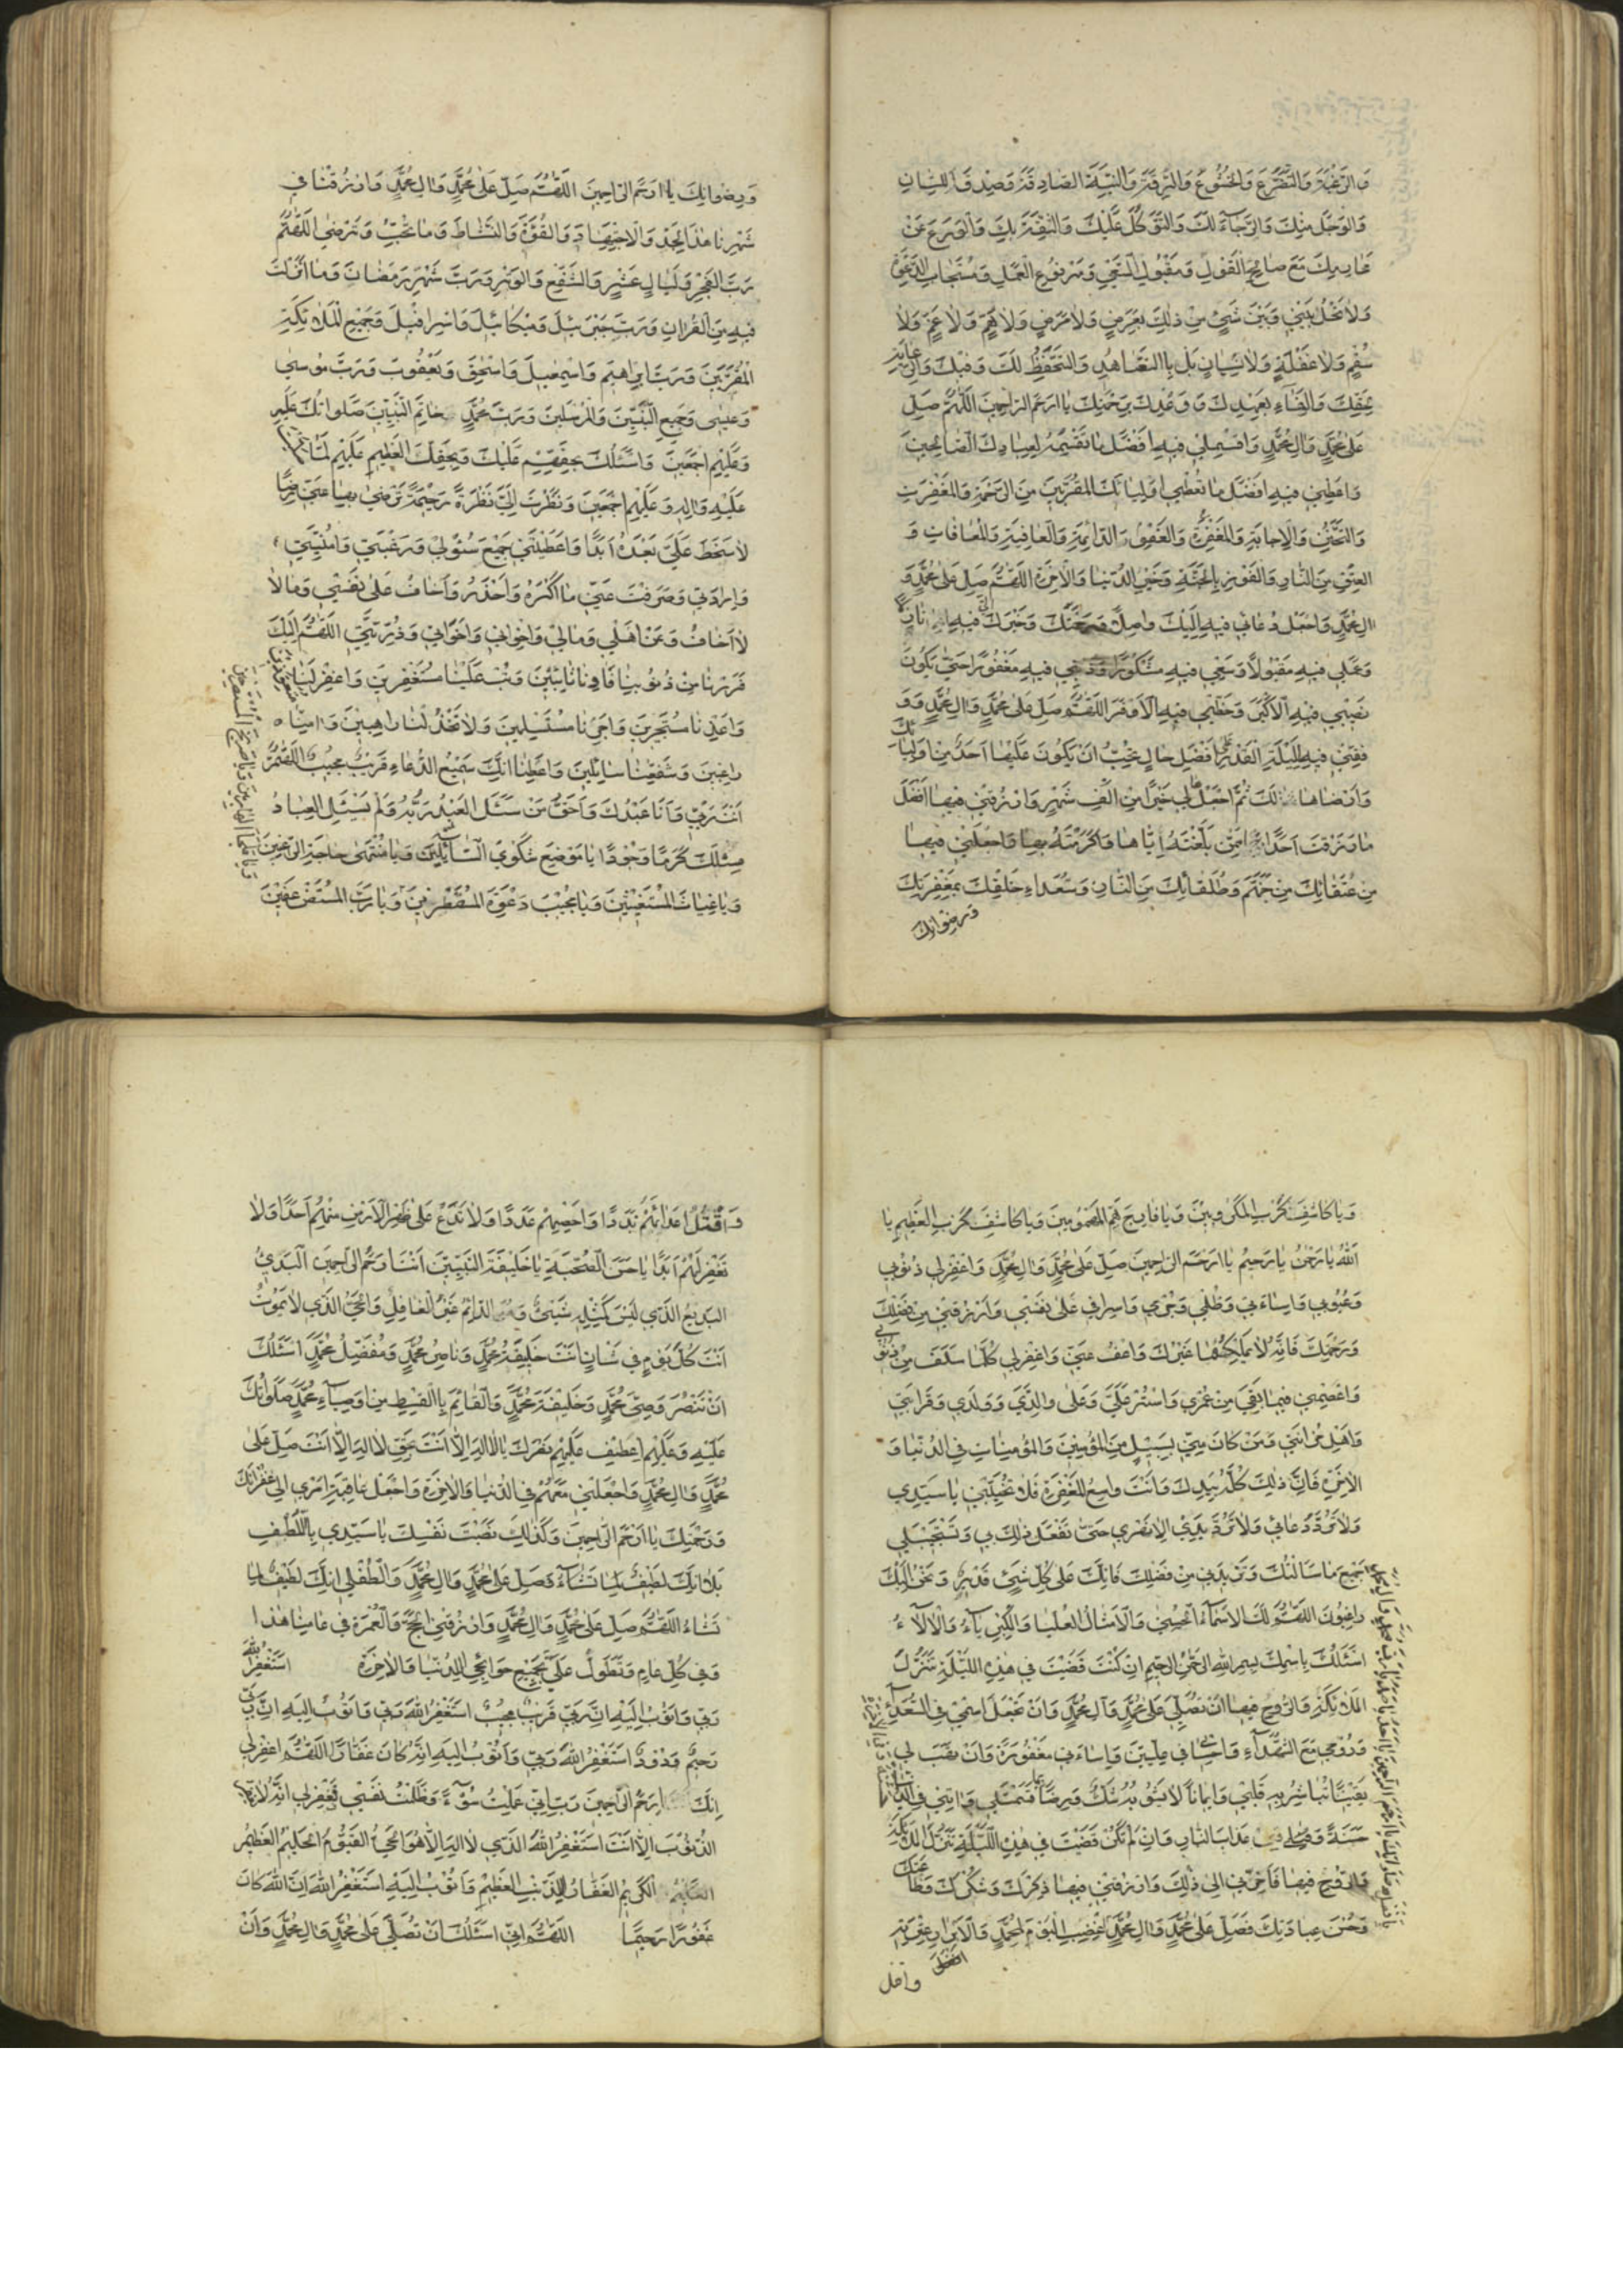 وَالرَّغْبَةَ وَالتَّضَرُّعَ وَالْخُشُوعَ وَالرِّقَّةَ وَالنِّيَّةَ الصَّادِقَةَ وَصِدْقَ اللِّسَانِ
وَالْوَجَلَ مِنْكَ وَالرَّجَاءَ لَكَ وَالتَّوَكُّلَ عَلَيْكَ وَالثِّقَةَ بِكَ وَالْوَرَعَ عَنْ
مَحَارِمِكَ مَعَ صَالِحِ الْقَوْلِ وَمَقْبُولِ السَّعْيِ وَمَرْفُوعِ الْعَمَلِ وَمُسْتَجَابِ الدَّعْوَةِ
وَلَا تَحُلْ بَيْنِي وَبَيْنَ شَيْءٍ مِنْ ذَلِكَ بِعَرَضٍ وَلَا مَرَضٍ وَلَا هَمٍّ وَلَا غَمٍّ وَلَا
سُقْمٍ وَلَا غَفْلَةٍ وَلَا نِسْيَانٍ بَلْ بِالتَّعَاهُدِ وَالتَّحَفُّظِ لَكَ وَفِيكَ وَالرِّعَايَةِ
لِحَقِّكَ وَالْوَفَاءِ بِعَهْدِكَ وَوَعْدِكَ بِرَحْمَتِكَ يَا اَرْحَمَ الرَّاحِمِينَ اَللَّهُمَّ صَلِّ
عَلَى مُحَمَّدٍ وَالِ مُحَمَّدٍ وَاقْسِمْ لِي فِيهِ اَفْضَلَ مَا تَقْسِمُهُ لِعِبَادِكَ الصَّالِحِينَ
وَاَعْطِنِي فِيهِ اَفْضَلَ مَا تُعْطِي اَوْلِيَائَكَ الْمُقَرَّبِينَ مِنَ الرَّحْمَةِ وَالْمَغْفِرَةِ
وَالتَّحَنُّنِ وَالْاِجَابَةِ وَالْعَفْوِ وَالْمَغْفِرَةِ الدَّائِمَةِ وَالْعَافِيَةِ وَالْمُعَافَاةِ وَ
الْعِتْقِ مِنَ النَّارِ وَالْفَوْزِ بِالْجَنَّةِ وَخَيْرِ الدُّنْيَا وَالْاخِرَةِ اَللَّهُمَّ صَلِّ عَلَى مُحَمَّدٍ وَ
الِ مُحَمَّدٍ وَاجْعَلْ دُعَائِي فِيهِ اِلَيْكَ وَاصِلًا وَرَحْمَتَكَ وَخَيْرَكَ اِلَيَّ فِيهِ نَازِلًا
وَعَمَلِي فِيهِ مَقْبُولًا وَسَعْيِي فِيهِ مَشْكُورًا وَذَنْبِي فِيهِ مَغْفُورًا حَتَّى يَكُونَ
نَصِيبِي فِيهِ الْاَكْبَرَ وَحَظِّي فِيهِ الْاَوْفَرَ اَللَّهُمَّ صَلِّ عَلَى مُحَمَّدٍ وَالِ مُحَمَّدٍ وَوَ
فِّقْنِي فِيهِ لِلَيْلَةِ الْقَدْرِ عَلَى اَفْضَلِ حَالٍ تُحِبُّ اَنْ يَكُونَ عَلَيْهَا اَحَدٌ مِنْ اَوْلِيَائِكَ
وَاَرْضَاهَا لَكَ ثُمَّ اجْعَلْهَا لِي خَيْرًا مِنْ اَلْفِ شَهْرٍ وَارْزُقْنِي فِيهَا اَفْضَلَ
مَا رَزَقْتَ اَحَدًا مِمَّنْ بَلَّغْتَهُ اِيَّاهَا وَاَكْرَمْتَهُ بِهَا وَاجْعَلْنِي فِيهَا
مِنْ عُتَقَائِكَ مِنْ جَهَنَّمَ وَطُلَقَائِكَ مِنَ النَّارِ وَسُعَدَاءِ خَلْقِكَ بِمَغْفِرَتِكَ
وَرِضْوَانِكَ
وَرِضْوَانِكَ يَا اَرْحَمَ الرَّاحِمِينَ اَللَّهُمَّ صَلِّ عَلَى مُحَمَّدٍ وَالِ مُحَمَّدٍ وَارْزُقْنَا فِي
شَهْرِنَا هَذَا الْجِدَّ وَالْاِجْتِهَادَ وَالْقُوَّةَ وَالنَّشَاطَ وَمَا تُحِبُّ وَتَرْضَى اَللَّهُمَّ
رَبَّ الْفَجْرِ وَلَيَالٍ عَشْرٍ وَالشَّفْعِ وَالْوَتْرِ وَرَبَّ شَهْرِ رَمَضَانَ وَمَا اَنْزَلْتَ
فِيهِ مِنَ الْقُرْانِ وَرَبَّ جَبْرَئِيلَ وَمِيكَائِيلَ وَاِسْرَافِيلَ وَجَمِيعِ الْمَلَائِكَةِ
الْمُقَرَّبِينَ وَرَبَّ اِبْرَاهِيمَ وَاِسْمَعِيلَ وَاِسْحَقَ وَيَعْقُوبَ وَرَبَّ مُوسَى
وَعِيسَى وَجَمِيعِ النَّبِيِّينَ وَالْمُرْسَلِينَ وَرَبَّ مُحَمَّدٍ خَاتَمِ النَّبِيِّينَ صَلَوَاتُكَ عَلَيْهِ
وَعَلَيْهِمْ اَجْمَعِينَ وَاَسْئَلُكَ بِحَقِّهِمْ عَلَيْكَ وَبِحَقِّكَ الْعَظِيمِ عَلَيْهِمْ لَمَّا صَلَّيْتَ
عَلَيْهِ وَالِهِ وَعَلَيْهِمْ اَجْمَعِينَ وَنَظَرْتَ اِلَيَّ نَظْرَةً رَحِيمَةً تَرْضَى بِهَا عَنِّي رِضًا
لَا سَخَطَ عَلَيَّ بَعْدَهُ اَبَدًا وَاَعْطَيْتَنِي جَمِيعَ سُؤْلِي وَرَغْبَتِي وَاُمْنِيَّتِي
وَاِرَادَتِي وَصَرَفْتَ عَنِّي مَا اَكْرَهُ وَاَحْذَرُ وَاَخَافُ عَلَى نَفْسِي وَمَا لَا
لَا اَخَافُ وَعَنْ اَهْلِي وَمَالِي وَاِخْوَانِي وَاَخَوَاتِي وَذُرِّيَّتِي اَللَّهُمَّ اِلَيْكَ
فَرَرْنَا مِنْ ذُنُوبِنَا فَاوِنَا تَائِبِينَ وَتُبْ عَلَيْنَا مُسْتَغْفِرِينَ وَاغْفِرْ لَنَا مُتَعَوِّذِينَ
وَاَعِذْنَا مُسْتَجِيرِينَ وَاَجِرْنَا مُسْتَسْلِمِينَ وَلَا تَخْذُلْنَا رَاهِبِينَ وَامِنَّا
رَاغِبِينَ وَشَفِّعْنَا سَائِلِينَ وَاَعْطِنَا اِنَّكَ سَمِيعُ الدُّعَاءِ قَرِيبٌ مُجِيبٌ اَللَّهُمَّ
اَنْتَ رَبِّي وَاَنَا عَبْدُكَ وَاَحَقُّ مَنْ سَئَلَ الْعَبْدُ رَبُّهُ وَلَمْ يَسْئَلِ الْعِبَادُ
مِثْلَكَ كَرَمًا وَجُودًا يَا مَوْضِعَ شَكْوَى السَّائِلِينَ وَيَا مُنْتَهَى حَاجَةِ الرَّاغِبِينَ
وَيَا غِيَاثَ الْمُسْتَغِيثِينَ وَيَا مُجِيبَ دَعْوَةِ الْمُضْطَرِّينَ وَيَا رَبَّ الْمُسْتَضْعَفِينَ
وَيَا كَاشِفَ كَرْبِ الْمَكْرُوبِينَ وَيَا فَارِجَ هَمِّ الْمَهْمُومِينَ وَيَا كَاشِفَ الْكَرْبِ الْعَظِيمِ يَا
اَللَّهُ يَا رَحْمَنُ يَا رَحِيمُ يَا اَرْحَمَ الرَّاحِمِينَ صَلِّ عَلَى مُحَمَّدٍ وَالِ مُحَمَّدٍ وَاغْفِرْ لِي ذُنُوبِي
وَعُيُوبِي وَاِسَاءَتِي وَظُلْمِي وَجُرْمِي وَاِسْرَافِي عَلَى نَفْسِي وَارْزُقْنِي مِنْ فَضْلِكَ
وَرَحْمَتِكَ فَاِنَّهُ لَا يَمْلِكُهُمَا غَيْرُكَ وَاعْفُ عَنِّي وَاغْفِرْ لِي كُلَّمَا سَلَفَ مِنْ ذُنُوبِي
وَاعْصِمْنِي فِيمَا بَقِيَ مِنْ عُمْرِي وَاسْتُرْ عَلَيَّ وَعَلَى وَالِدَيَّ وَوَلَدِي وَقَرَابَتِي
وَاَهْلِ حُزَانَتِي وَمَنْ كَانَ مِنِّي بِسَبِيلٍ مِنَ الْمُؤْمِنِينَ وَالْمُؤْمِنَاتِ فِي الدُّنْيَا وَ
الْاخِرَةِ فَاِنَّ ذَلِكَ كُلَّهُ بِيَدِكَ وَاَنْتَ وَاسِعُ الْمَغْفِرَةِ فَلَا تُخَيِّبْنِي يَا سَيِّدِي
وَلَا تَرُدَّ دُعَائِي وَلَا تَرُدَّ يَدِي اِلَى نَحْرِي حَتَّى تَفْعَلَ ذَلِكَ بِي وَتَسْتَجِيبَ لِي
جَمِيعَ مَا سَاَلْتُكَ وَتَزِيدَنِي مِنْ فَضْلِكَ فَاِنَّكَ عَلَى كُلِّ شَيْءٍ قَدِيرٌ وَنَحْنُ اِلَيْكَ
رَاغِبُونَ اَللَّهُمَّ لَكَ الْاَسْمَاءُ الْحُسْنَى وَالْاَمْثَالُ الْعُلْيَا وَالْكِبْرِيَاءُ وَالْالَاءُ
اَسْئَلُكَ بِاسْمِكَ بِسْمِ اللَّهِ الرَّحْمَنِ الرَّحِيمِ اِنْ كُنْتَ قَضَيْتَ فِي هَذِهِ اللَّيْلَةِ تَنَزُّلَ
الْمَلَائِكَةِ وَالرُّوحِ فِيهَا اَنْ تُصَلِّيَ عَلَى مُحَمَّدٍ وَالِ مُحَمَّدٍ وَاَنْ تَجْعَلَ اسْمِي فِي السُّعَدَاءِ
وَرُوحِي مَعَ الشُّهَدَاءِ وَاِحْسَانِي فِي عِلِّيِّينَ وَاِسَاءَتِي مَغْفُورَةً وَاَنْ تَهَبَ لِي
يَقِينًا تُبَاشِرُ بِهِ قَلْبِي وَاِيمَانًا لَا يَشُوبُهُ شَكٌّ وَرِضًا بِمَا قَسَمْتَ لِي وَاتِنِي فِي الدُّنْيَا
حَسَنَةً وَقِنِي عَذَابَ النَّارِ وَاِنْ لَمْ تَكُنْ قَضَيْتَ فِي هَذِهِ اللَّيْلَةِ تَنَزُّلَ الْمَلَائِكَةِ
وَالرُّوحِ فِيهَا فَاَخِّرْنِي اِلَى ذَلِكَ وَارْزُقْنِي فِيهَا ذِكْرَكَ وَشُكْرَكَ وَطَاعَتَكَ
وَحُسْنَ عِبَادَتِكَ فَصَلِّ عَلَى مُحَمَّدٍ وَالِ مُحَمَّدٍ اِغْضَبِ الْيَوْمَ لِمُحَمَّدٍ وَلِاَبْرَارِ عِتْرَتِهِ
وَاقْتُلْ اَعْدَائَهُمْ بَدَدًا وَاَحْصِهِمْ عَدَدًا وَلَا تَدَعْ عَلَى ظَهْرِ الْاَرْضِ مِنْهُمْ اَحَدًا وَلَا
تَغْفِرْ لَهُمْ اَبَدًا يَا حَسَنَ الصُّحْبَةِ يَا خَلِيفَةَ النَّبِيِّينَ اَنْتَ اَرْحَمُ الرَّاحِمِينَ الْبَدِيءُ
الْبَدِيعُ الَّذِي لَيْسَ كَمِثْلِهِ شَيْءٌ وَالدَّائِمُ غَيْرُ الْغَافِلِ وَالْحَيُّ الَّذِي لَا يَمُوتُ
اَنْتَ كُلَّ يَوْمٍ فِي شَأْنٍ اَنْتَ خَلِيفَةُ مُحَمَّدٍ وَنَاصِرُ مُحَمَّدٍ وَمُفَضِّلُ مُحَمَّدٍ اَسْئَلُكَ
اَنْ تَنْصُرَ وَصِيَّ مُحَمَّدٍ وَخَلِيفَةَ مُحَمَّدٍ وَالْقَائِمَ بِالْقِسْطِ مِنْ اَوْصِيَاءِ مُحَمَّدٍ صَلَوَاتُكَ
عَلَيْهِ وَعَلَيْهِمْ اِعْطِفْ عَلَيْهِمْ نَصْرَكَ يَا لَا اِلَهَ اِلَّا اَنْتَ بِحَقِّ لَا اِلَهَ اِلَّا اَنْتَ صَلِّ عَلَى
مُحَمَّدٍ وَالِ مُحَمَّدٍ وَاجْعَلْنِي مَعَهُمْ فِي الدُّنْيَا وَالْاخِرَةِ وَاجْعَلْ عَاقِبَةَ اَمْرِي اِلَى غُفْرَانِكَ
وَرَحْمَتِكَ يَا اَرْحَمَ الرَّاحِمِينَ وَكَذَلِكَ نَسَبْتَ نَفْسَكَ يَا سَيِّدِي بِاللُّطْفِ
بَلَى اِنَّكَ لَطِيفٌ لِمَا تَشَاءُ فَصَلِّ عَلَى مُحَمَّدٍ وَالِ مُحَمَّدٍ وَالْطُفْ لِي اِنَّكَ لَطِيفٌ لِمَا
تَشَاءُ اَللَّهُمَّ صَلِّ عَلَى مُحَمَّدٍ وَالِ مُحَمَّدٍ وَارْزُقْنِي الْحَجَّ وَالْعُمْرَةَ فِي عَامِنَا هَذَا
وَفِي كُلِّ عَامٍ وَتَطَوَّلْ عَلَيَّ بِجَمِيعِ حَوَائِجِي لِلدُّنْيَا وَالْاخِرَةِ اَسْتَغْفِرُ اللَّهَ
رَبِّي وَاَتُوبُ اِلَيْهِ اِنَّ رَبِّي قَرِيبٌ مُجِيبٌ اَسْتَغْفِرُ اللَّهَ رَبِّي وَاَتُوبُ اِلَيْهِ اِنَّ رَبِّي
رَحِيمٌ وَدُودٌ اَسْتَغْفِرُ اللَّهَ رَبِّي وَاَتُوبُ اِلَيْهِ اِنَّهُ كَانَ غَفَّارًا اَللَّهُمَّ اغْفِرْ لِي
اِنَّكَ اَرْحَمُ الرَّاحِمِينَ رَبِّ اِنِّي عَمِلْتُ سُوءً وَظَلَمْتُ نَفْسِي فَاغْفِرْ لِي اِنَّهُ لَا يَغْفِرُ
الذُّنُوبَ اِلَّا اَنْتَ اَسْتَغْفِرُ اللَّهَ الَّذِي لَا اِلَهَ اِلَّا هُوَ الْحَيُّ الْقَيُّومُ الْحَلِيمُ الْعَظِيمُ
الْكَرِيمُ الْغَفَّارُ لِلذَّنْبِ الْعَظِيمِ وَاَتُوبُ اِلَيْهِ اَسْتَغْفِرُ اللَّهَ اِنَّ اللَّهَ كَانَ
غَفُورًا رَحِيمًا اَللَّهُمَّ اِنِّي اَسْئَلُكَ اَنْ تُصَلِّيَ عَلَى مُحَمَّدٍ وَالِ مُحَمَّدٍ وَاَنْ